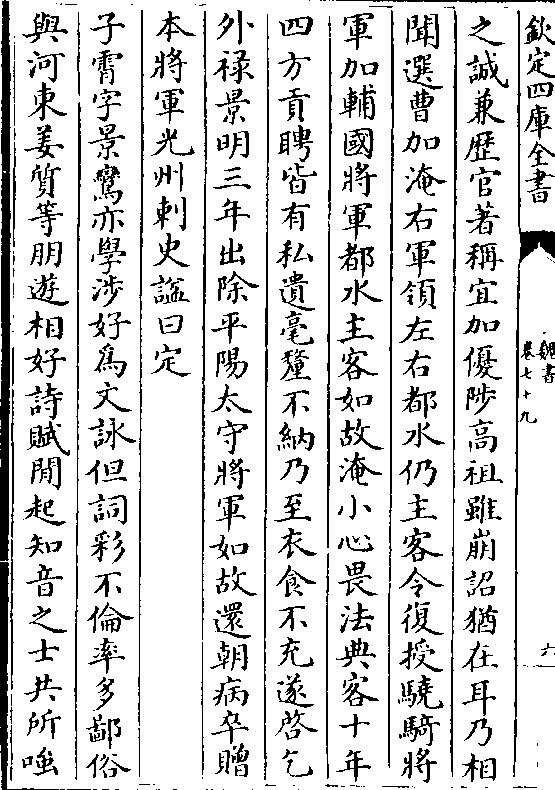 欽定四庫全書
魏書
卷七十九
六
之誠兼歴官著稱宜加優陟高祖雖崩詔猶在耳乃相
聞選曹加淹右軍領左右都水仍主客令復授驍騎將
軍加輔國將軍都水主客如故淹小心畏法典客十年
四方貢聘皆有私遺毫釐不納乃至衣食不充遂啓乞
外祿景明三年出除平陽太守將軍如故還朝病卒贈
本將軍光州刺史諡曰定
子霄字景鸞亦學涉好為文詠但詞彩不倫率多鄙俗
與河東姜質等朋遊相好詩賦間起知音之士共所嗤